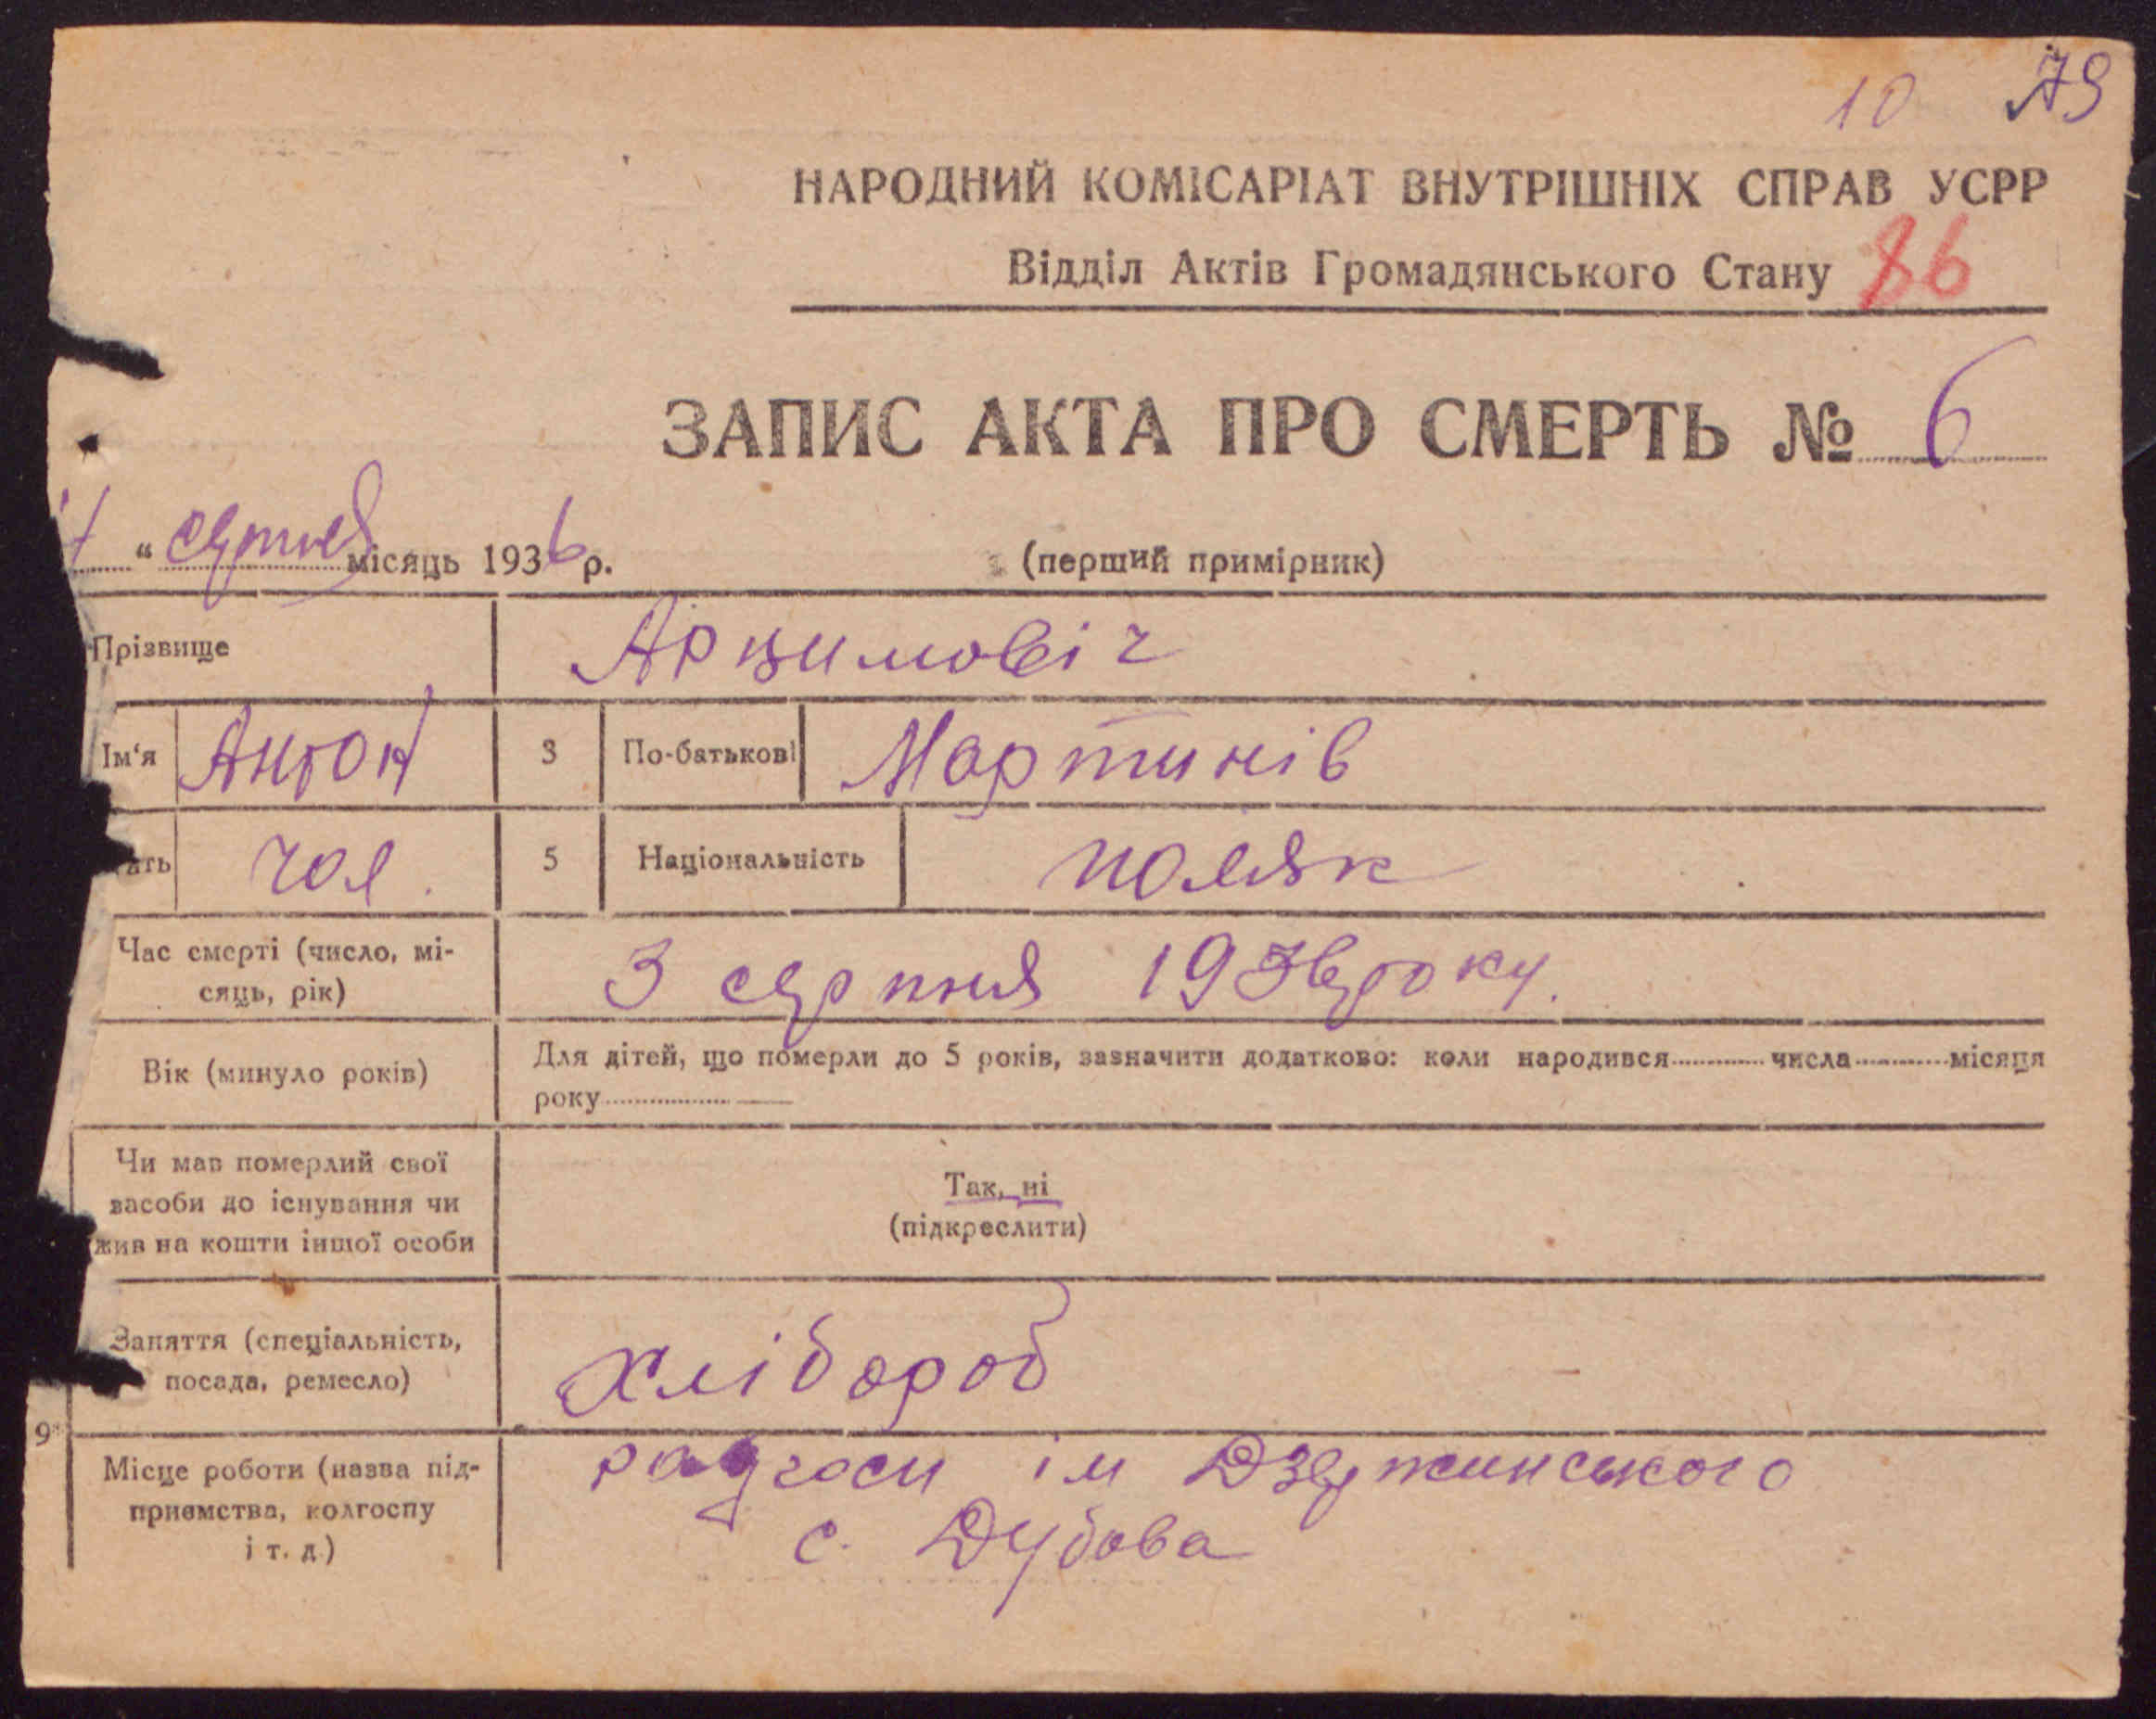 10 79
НАРОДНИЙ КОМІСАРІАТ ВНУТРІШНІХ СПРАВ УСРР
Відділ Актів Громадянського Стану 86
ЗАПИС АКТА ПРО СМЕРТЬ № 6
“ серпня місяць 1936 р. (перший примірник)
Прізвище Арцимовіч
Ім‘я Антон 3 По-батькові Мартинів
ать чол. 5 Національність поляк
Час смерті (число, мі-
сяць, рік)
3 серпня 1936 року.
Вік (минуло років)
Для дітей, що померли до 5 років, зазначити додатково: коли народився числа місяця
року
Чи мав померлий свої
засоби до існування чи
жив на кошти іншої особи
Так, ні
(підкреслити)
Заняття (спеціальність,
посада, ремесло)
хлібороб
9
Місце роботи (назва під-
приємства, колгоспу
і т. д.)
ім Дзержинського
с. Дубова